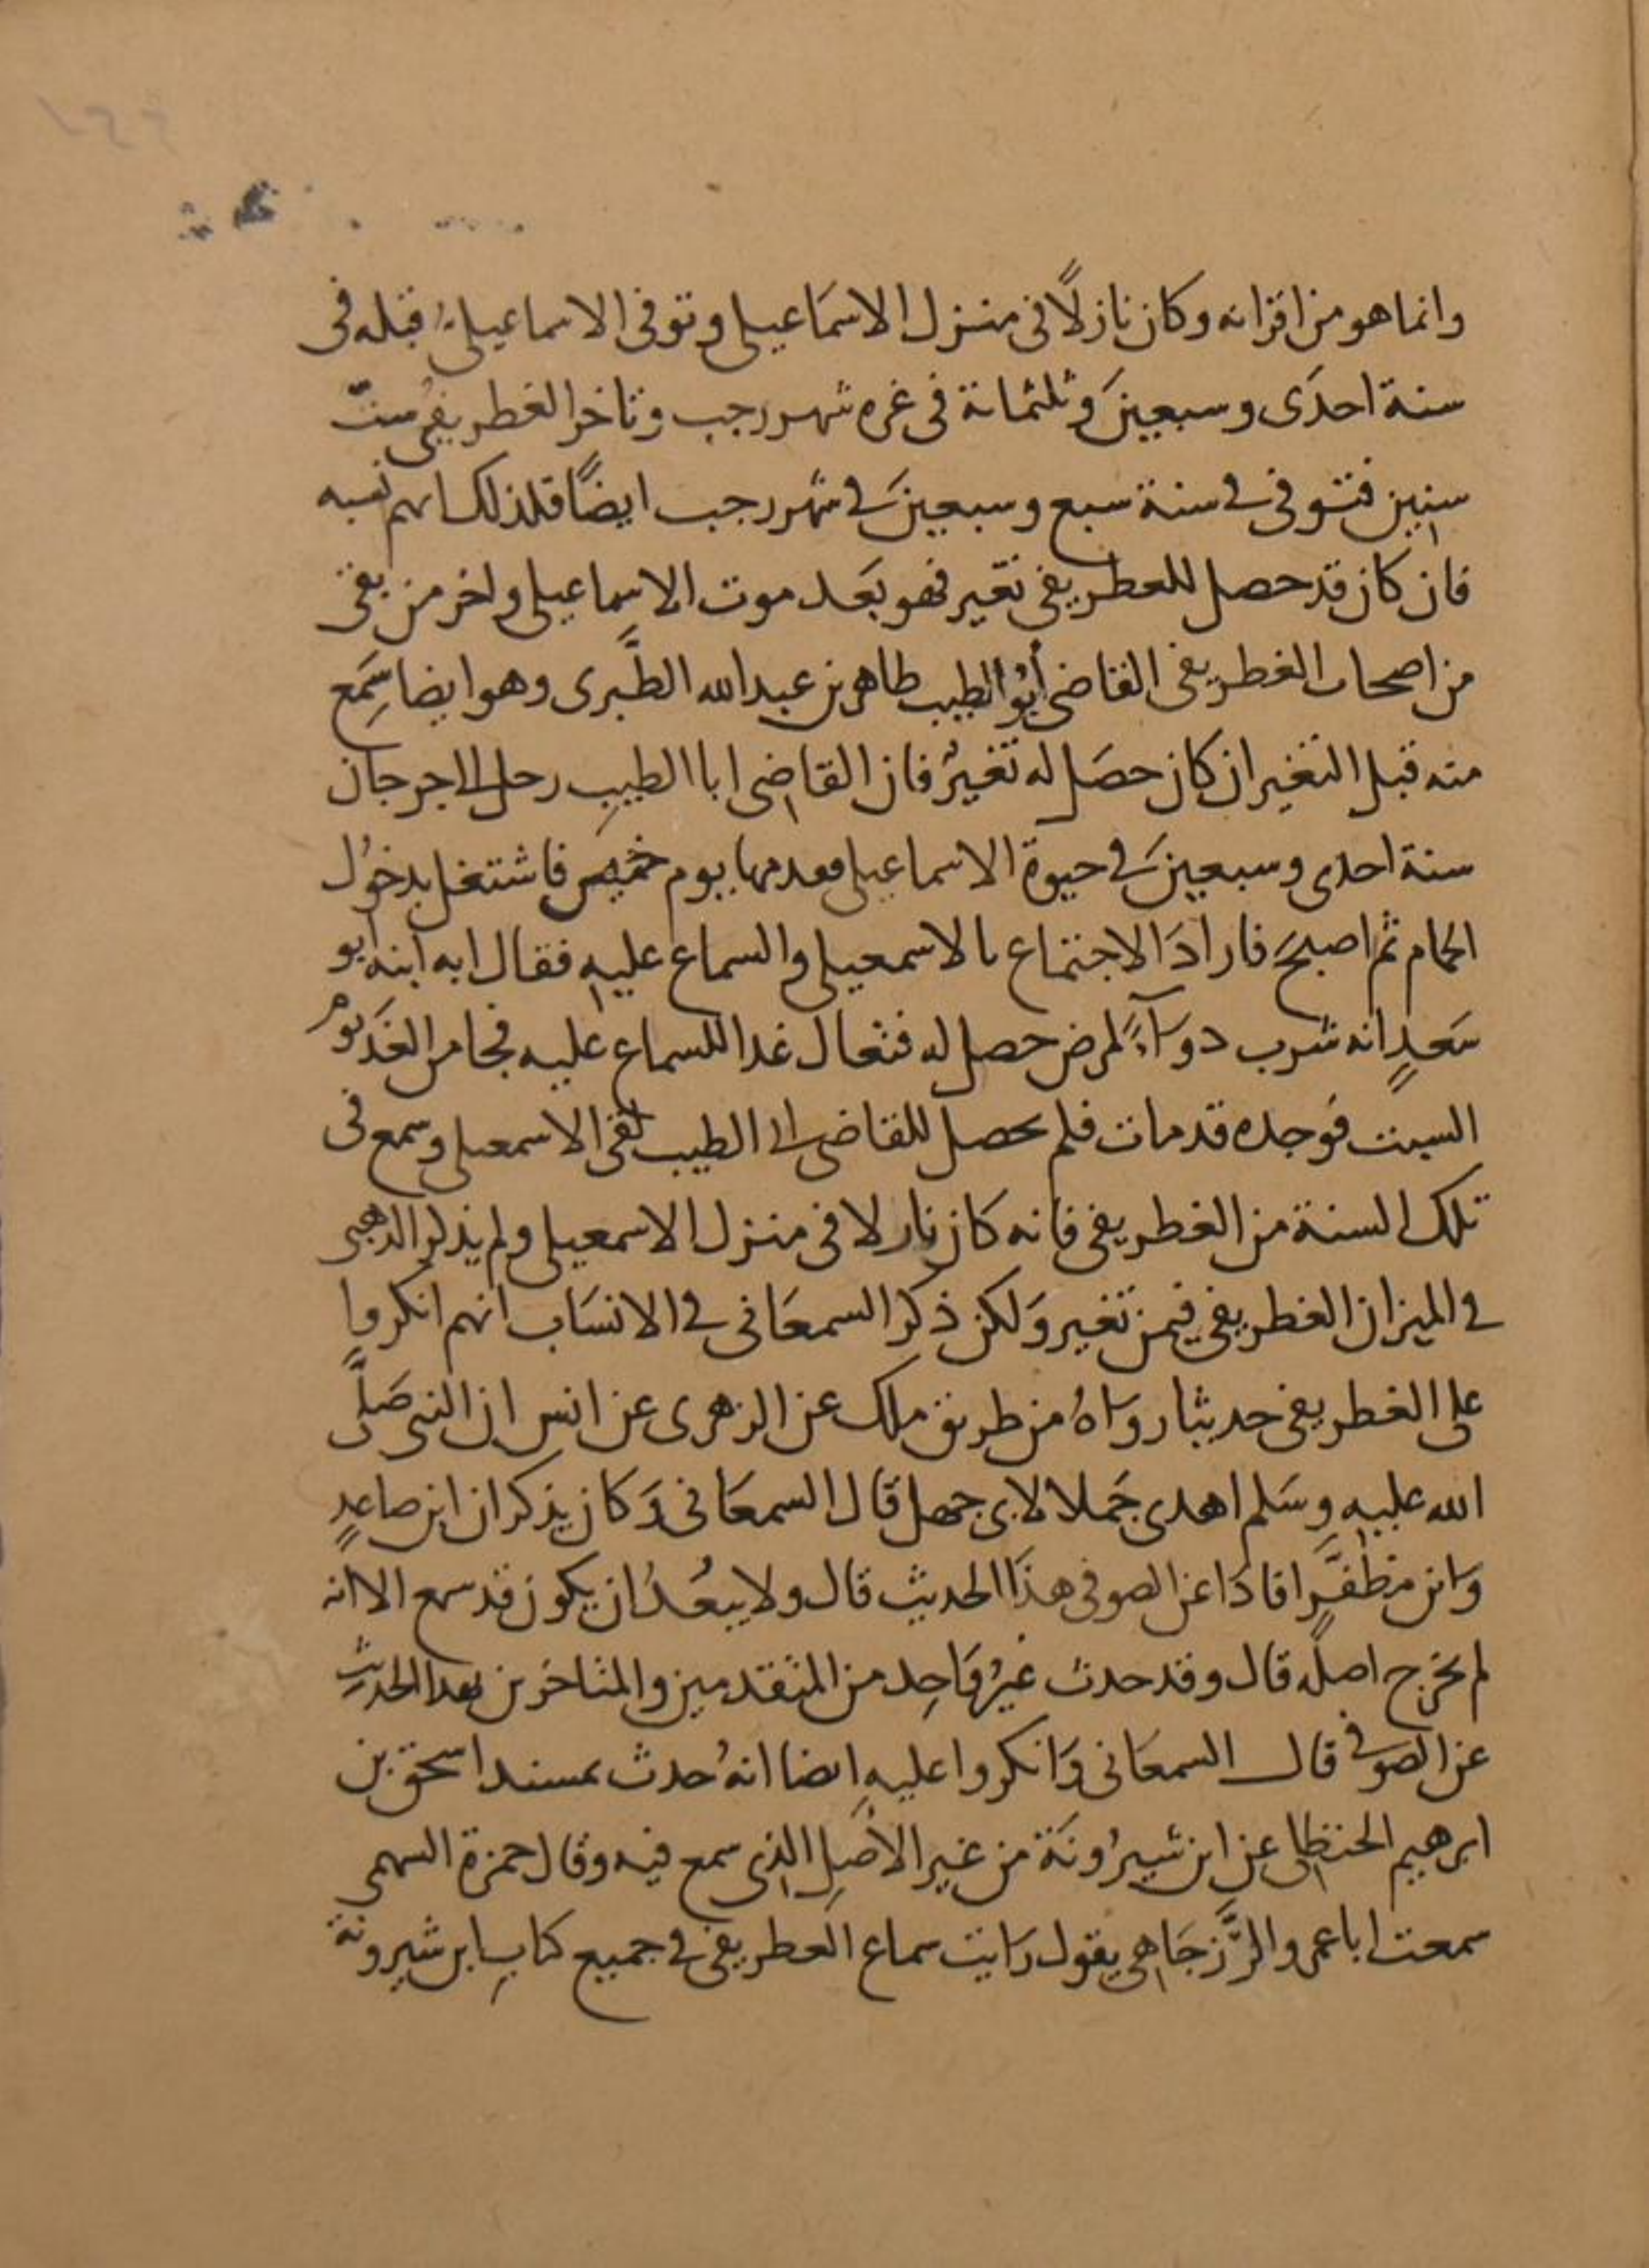 وانما هو من اقرانه وكان نازلًا في منزل الاسمَاعيلي وتوفي الاسماعيلي قبله في
سنة احدَى وسبعينَ وثلثمائة في غره شهر رجب وتاخر الغطريفي ستّ
سنين فتوفي في سنة سبع وسبعينَ في شهر رجب ايضًا فلذلك ابهم نسبه
فان كان قد حصل للغطريفي تغير فهو بَعد موت الاسماعيلي واخر من بقي
من اصحاب الغطريفي القاضي أبُو الطيب طاهر بن عبد الله الطَّبرى وهو ايضا سَمِع
منه قبل التغير ان كان حصَل له تغيرُ فان القاضي ابا الطيبِ رحل الى جرجان
سنة احدى وسبعينَ في حيوة الاسماعيلي فقدمها يوم خميس فاشتغل بدخول
الحمام ثم اصبحَ فارادَ الاجتماع بالاسمعيلي والسماع عليهِ فقال له ابنه ابو
سَعدٍ انه شرب دواءً لمرض حصل له فتعال غدا للسماع عليه فجا من الغَد يومَ
السبت فوَجده قد مات فلم يحصل للقاضى ابى الطيب لقى الاسمعيلي وسمع في
تلك السنة من الغطريفي فانه كان نازلا في منزل الاسمعيلي ولم يذكر الذهبي
في الميزان الغطريفي فيمن تغير وَلكن ذكر السمعَاني في الانسَاب انهم انكروا
على الغطريفي حديثا رواهُ من طريق ملك عن الزهرى عن انس ان النبي صَلَّى
الله عليه وسَلم اهدى جَملا لابى جهل قال السمعَاني وَكان يذكر ان ابن صاعدٍ
وابن مظفَّرٍ افادَا عن الصوفى هذَا الحديث قال ولا يبعُدُ ان يكون قد سمع الا انه
لم يخرج اصلَه قال وقد حدث غيرُ وَاحِد من المتقدمين والمتاخرين بهذا الحديثِ
عن الصوفي قال السمعَانى وَانكروا عليهِ ايضا انهُ حدث بمسند اسحق بن
ابرهيم الحنظلى عن ابن شيرُونَة من غير الأصلِ الذي سمع فيه وقال حمزة السهمى
سمعت ابا عمرو الرَّزجَاهي يقول رَايت سماع الغطريفي في جميع كتابِ ابن شيرونة